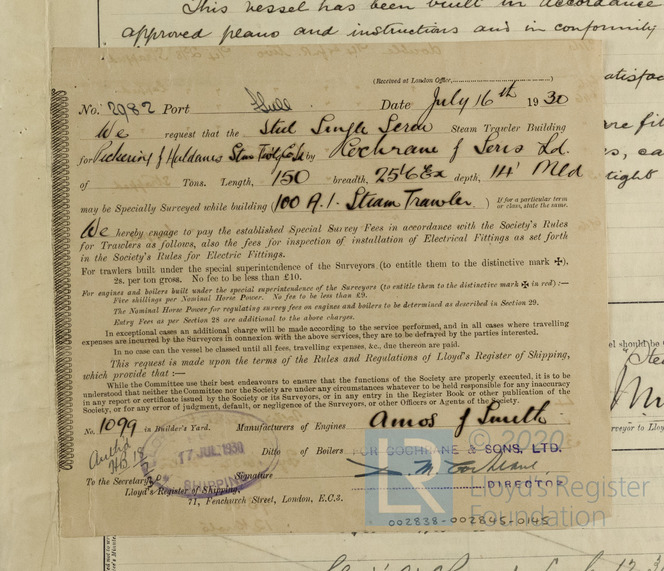 This vessel has been built in accordance
approved plans and instructions and in conformity
(Received at London Office,
No. 2982 Port Hull Date July 16th 1930
We request that the Steel Single Screw Steam Trawler Building
for Pickering & Haldanes Steam by Cochrane & Sons Ld.
of Tons. Length, 150 breadth, 25'6 Ex depth, 14' Mld
may be Specially Surveyed while building (100 A.1. Steam Trawler.) If for a particular term or class, state the same.
We hereby engage to pay the established Special Survey Fees in accordance with the Society's Rules
for Trawlers as follows, also the fees for inspection of installation of Electrical Fittings as set forth
in the Society's Rules for Electric Fittings.
For trawlers built under the special superintendence of the Surveyors (to entitle them to the distinctive mark ✠),
2s. per ton gross. No fee to be less than £10.
For engines and boilers built under the special superintendence of the Surveyors (to entitle them to the distinctive mark ✠ in red) :—
Five shillings per Nominal Horse Power. No fee to be less than £9.
The Nominal Horse Power for regulating survey fees on engines and boilers to be determined as described in Section 29.
Entry Fees as per Section 28 are additional to the above charges.
In exceptional cases an additional charge will be made according to the service performed, and in all cases where travelling
expenses are incurred by the Surveyors in connection with the above services, they are to be defrayed by the parties interested.
In no case can the vessel be classed until all fees, travelling expenses, &c., due thereon are paid.
This request is made upon the terms of the Rules and Regulations of Lloyd's Register of Shipping,
which provide that :—
While the Committee use their best endeavours to ensure that the functions of the Society are properly executed, it is to be
understood that neither the Committee nor the Society are under any circumstances whatever to be held responsible for any inaccuracy
in any report or certificate issued by the Society or its Surveyors, or in any entry in the Register Book or other publication of the
Society, or for any error of judgment, default, or negligence of the Surveyors, or other Officers or Agents of the Society.
No. 1099 in Builder's Yard. Manufacturers of Engines Amos & Smith
17 JUL 1930
SHIPPING
Ditto of Boilers
FOR COCHRANE & SONS, LTD.
Signature Cochrane
DIRECTOR
To the Secretary,
Lloyd's Register of Shipping,
71, Fenchurch Street, London, E.C.3.
002838-002845-0145
LR
© 2020
Lloyd's Register
Foundation